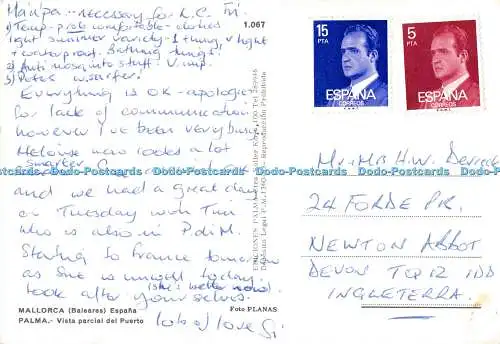 Manpa - necessary for L.C. Tri.
1) Temp - prob comfortable - clothes
light summer variety - 1 thing v light
+ waterproof. Bathing things!
2) Anti mosquito stuff - V. imp.
3) Peter w.surfer!
Everything is OK - apologies
for lack of communication
however I've been very busy
Heloise now looks a lot
smarter
and we had a great day
on Tuesday with Tim
who is also in P di M.
Starting to France tomorrow
as she is unwell today.
(she's better now)
Look after yourselves.
lots of love Si
MALLORCA (Baleares) España
PALMA.- Vista parcial del Puerto
Foto PLANAS
1.067
EDICIONES PALMA
Reproducción Prohibida
15
PTA
ESPAÑA
CORREOS
5
PTA
ESPAÑA
CORREOS
Mr + Mrs H.W.
24 FORDE PK.
NEWTON ABBOT
DEVON TQ12 1DD
INGLETERRA.
Dodo-Postcards Dodo-Postcards Dodo-Postcards Dodo-Postcards Dodo-Postcards